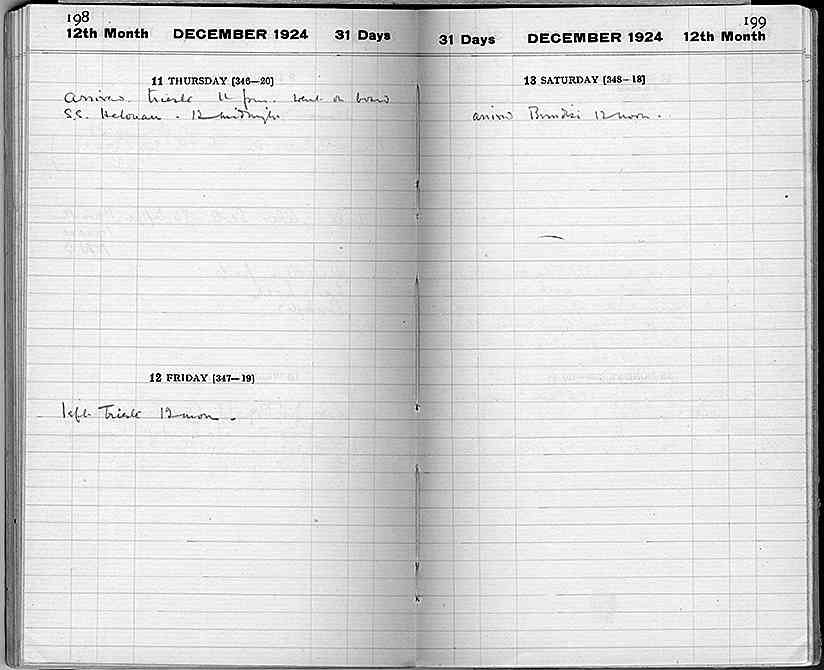 198
12th Month DECEMBER 1924 31 Days
11 THURSDAY [346—20]
arrived. Trieste 11 pm. went on board
S.S. Helouan. 12 midnight
12 FRIDAY [347—19]
left Trieste 12 noon.
199
31 Days DECEMBER 1924 12th Month
13 SATURDAY [348—18]
arrived Brindisi 12 noon.